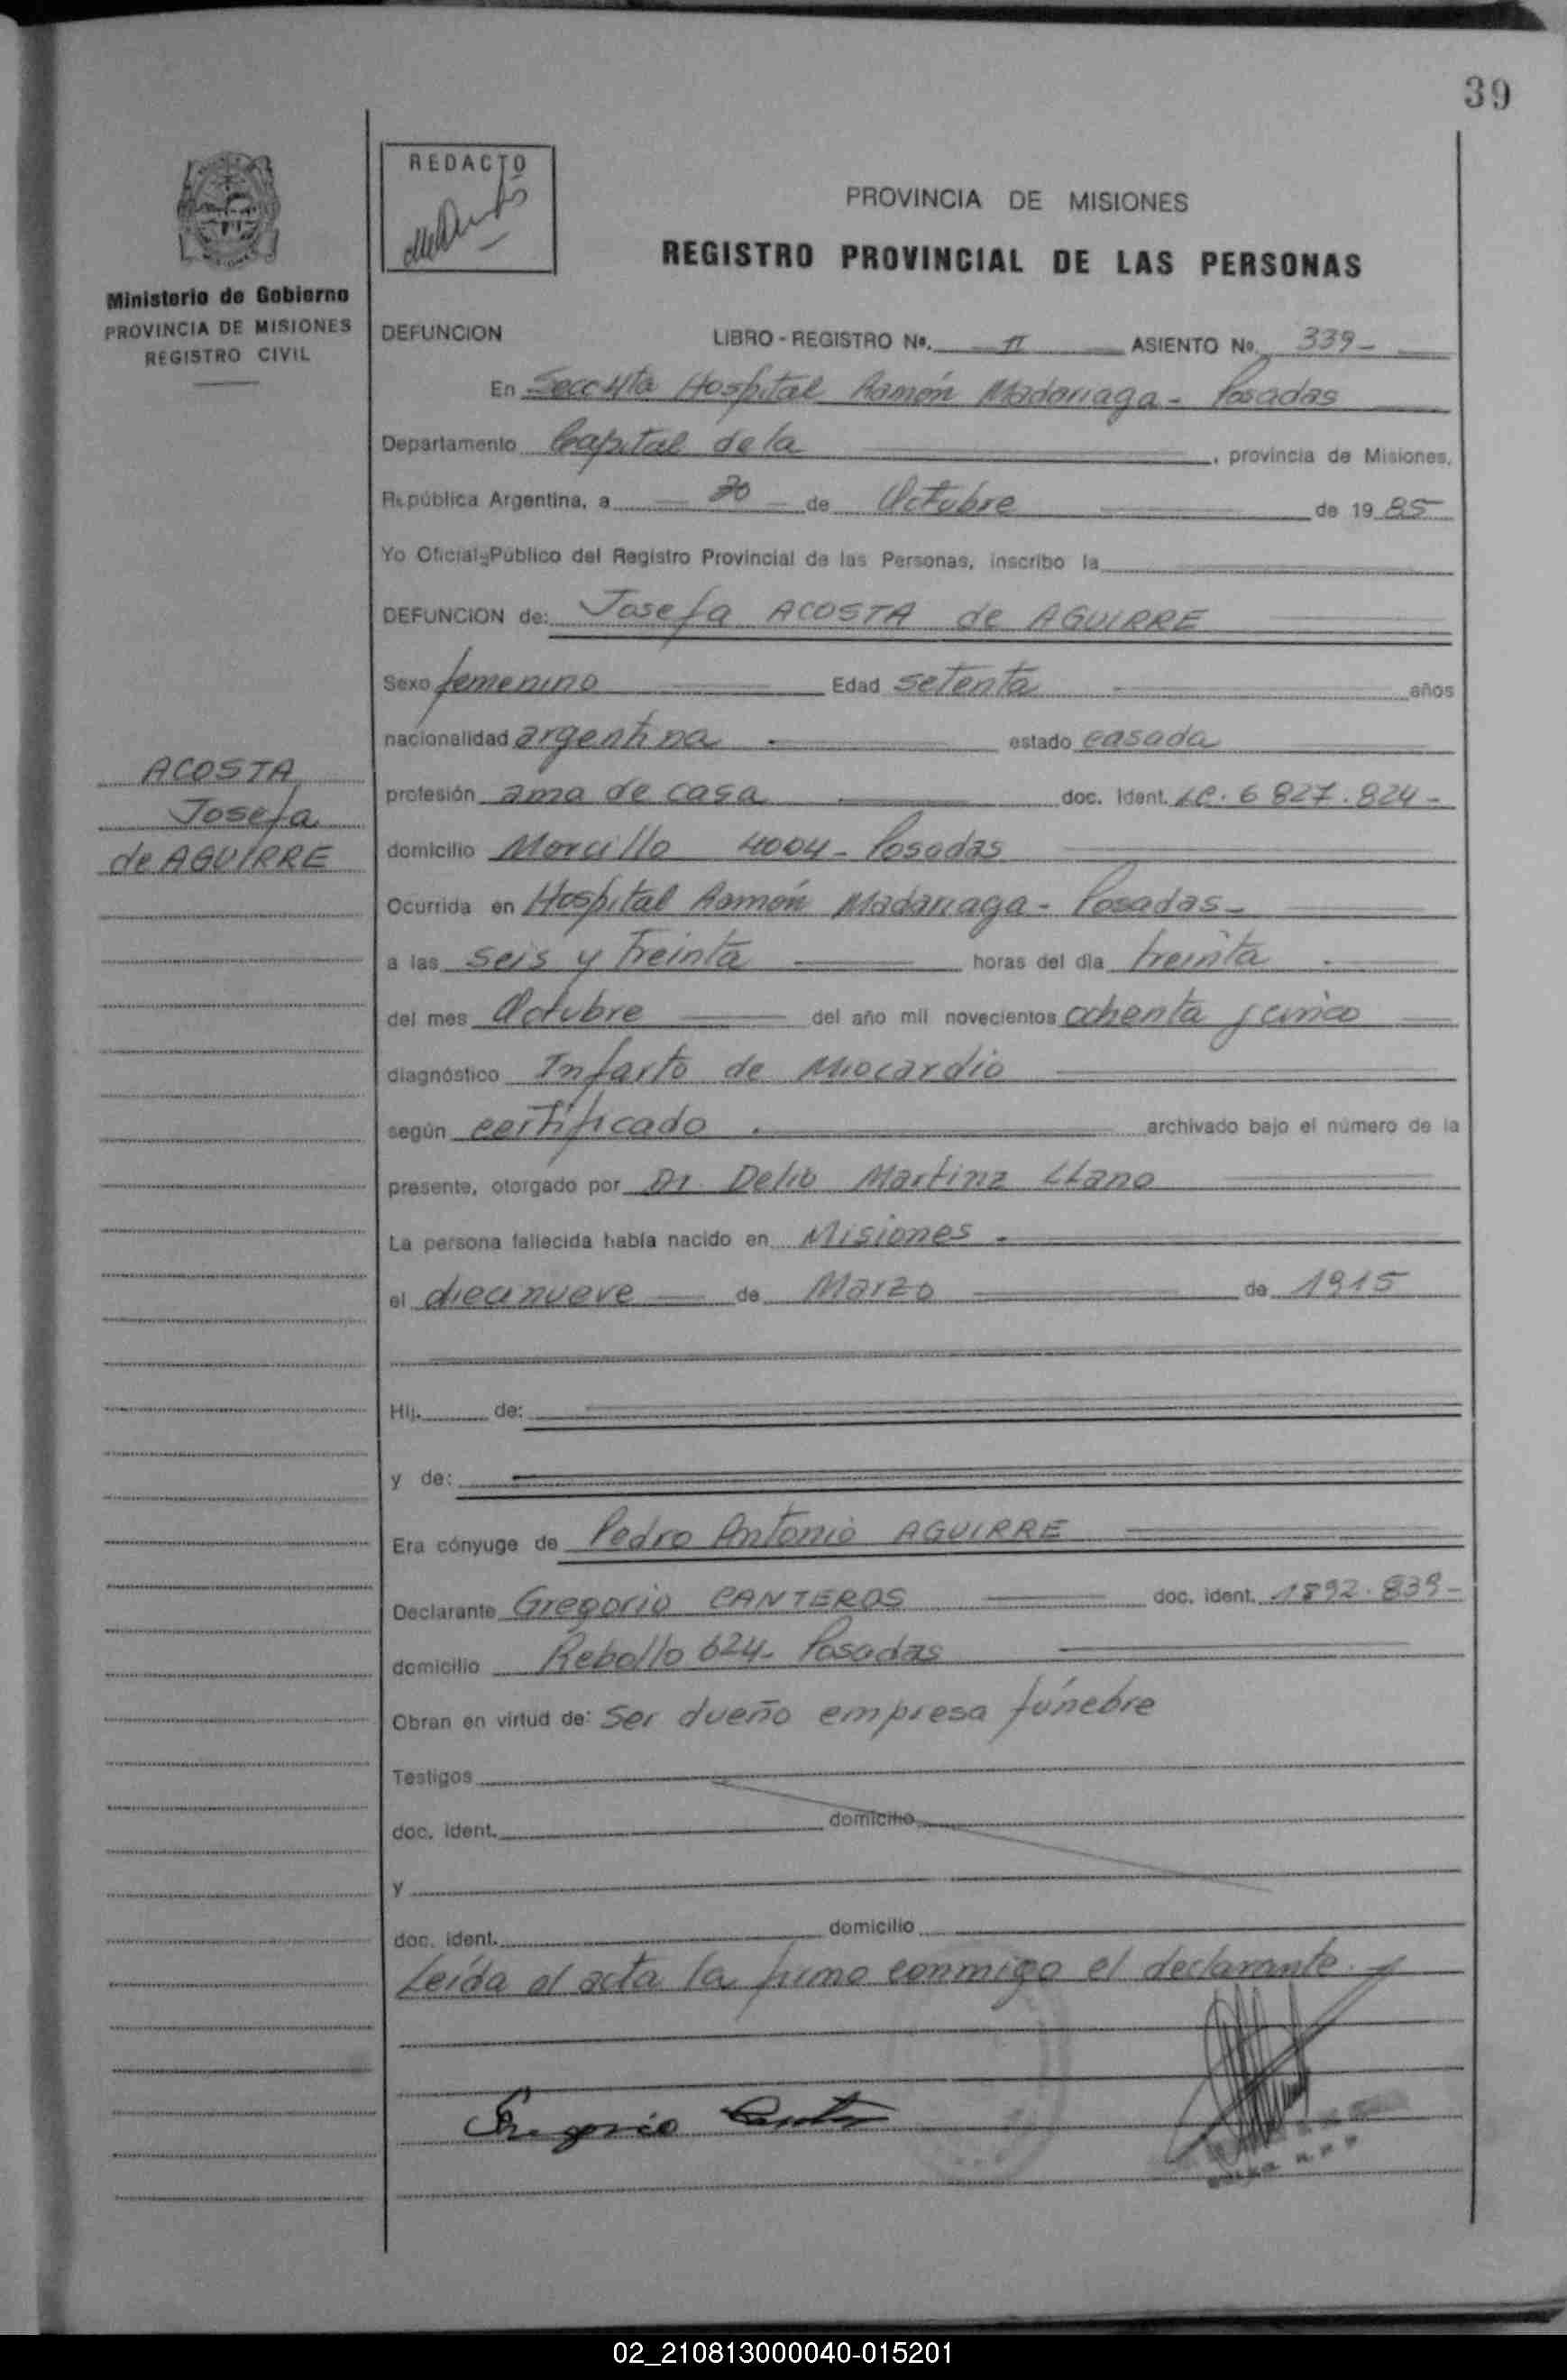 39
REDACTO
PROVINCIA DE MISIONES
REGISTRO PROVINCIAL DE LAS PERSONAS
Ministerio de Gobierno
PROVINCIA DE MISIONES
REGISTRO CIVIL
DEFUNCION LIBRO - REGISTRO No. II ASIENTO No. 339-
En Secc 4ta Hospital Ramón Madariaga - Posadas
Departamento Capital de la , provincia de Misiones,
República Argentina, a 30 de Octubre de 19 85
Yo Oficial Público del Registro Provincial de las Personas, inscribo la
DEFUNCION de: Josefa ACOSTA de AGUIRRE
Sexo femenino Edad setenta años
nacionalidad argentina estado casada
ACOSTA
Josefa
de AGUIRRE
profesión ama de casa doc. ident. LC. 6 827.824-
domicilio Morcillo 4004 - Posadas
Ocurrida en Hospital Ramón Madariaga - Posadas-
a las seis y treinta horas del día treinta
del mes Octubre del año mil novecientos ochenta y cinco
diagnóstico Infarto de Miocardio
según certificado archivado bajo el número de la
presente, otorgado por Dr. Delio Martinz LLano
La persona fallecida había nacido en Misiones -
el diecinueve de Marzo de 1915
Hij. de:
y de:
Era cónyuge de Pedro Antonio AGUIRRE
Declarante Gregorio CANTEROS doc. ident. 1892.839-
domicilio Rebollo 624- Posadas
Obran en virtud de: Ser dueño empresa fúnebre
Testigos
doc. ident. domicilio
y
doc. ident. domicilio
Leída el acta la firma conmigo el declarante.
Gregorio
02_210813000040-015201